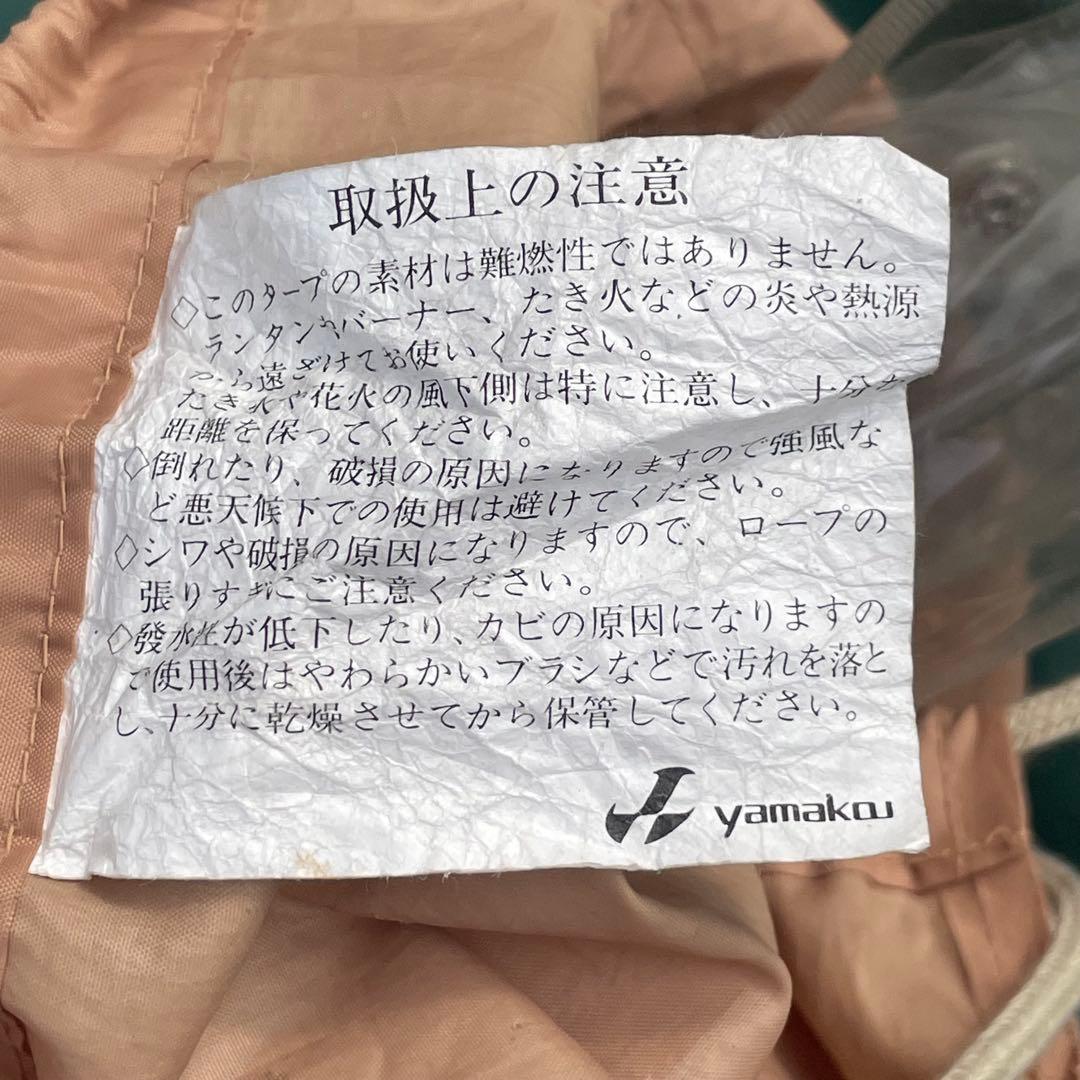 取扱上の注意
◇このタープの素材は難燃性ではありません。
ランタンやバーナー、たき火などの炎や熱源
から遠ざけてお使いください。
たき火や花火の風下側は特に注意し、十分な
距離を保ってください。
◇倒れたり、破損の原因になりますので強風な
ど悪天候下での使用は避けてください。
◇シワや破損の原因になりますので、ロープの
張りすぎにご注意ください。
◇發水性が低下したり、カビの原因になりますの
で使用後はやわらかいブラシなどで汚れを落と
し、十分に乾燥させてから保管してください。
yamakou